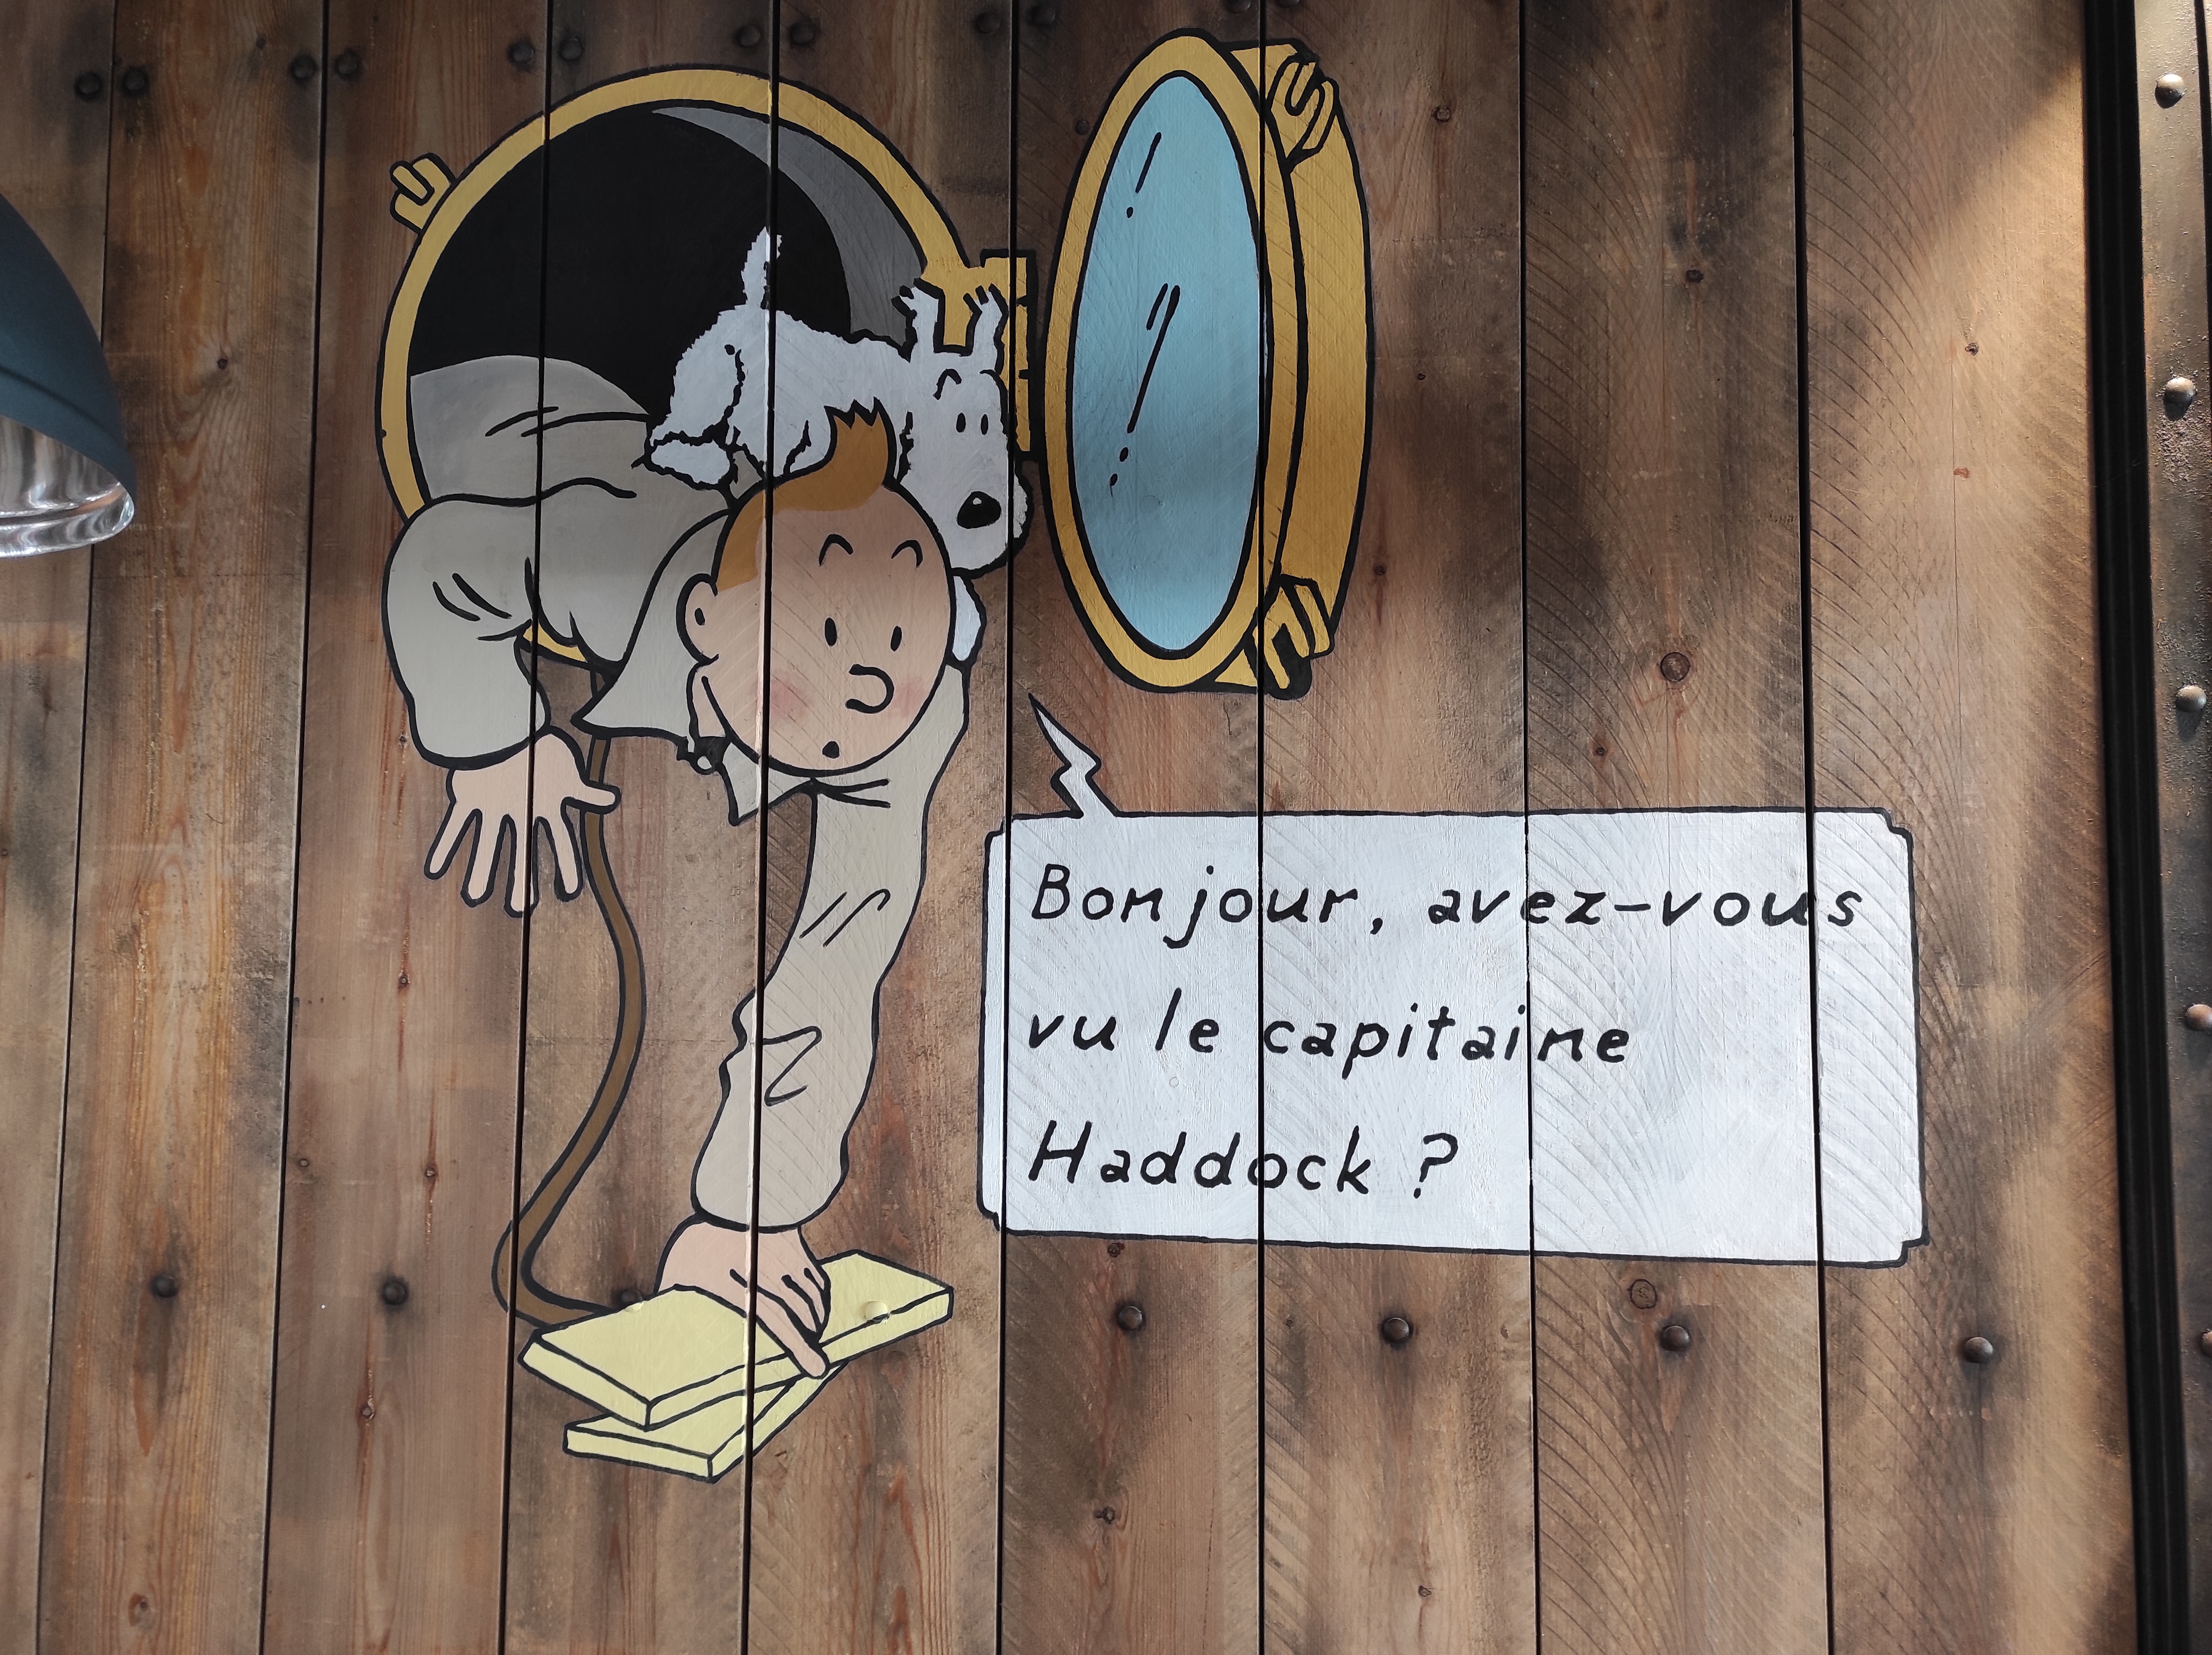 Bonjour, avez-vous
vu le capitaine
Haddock ?